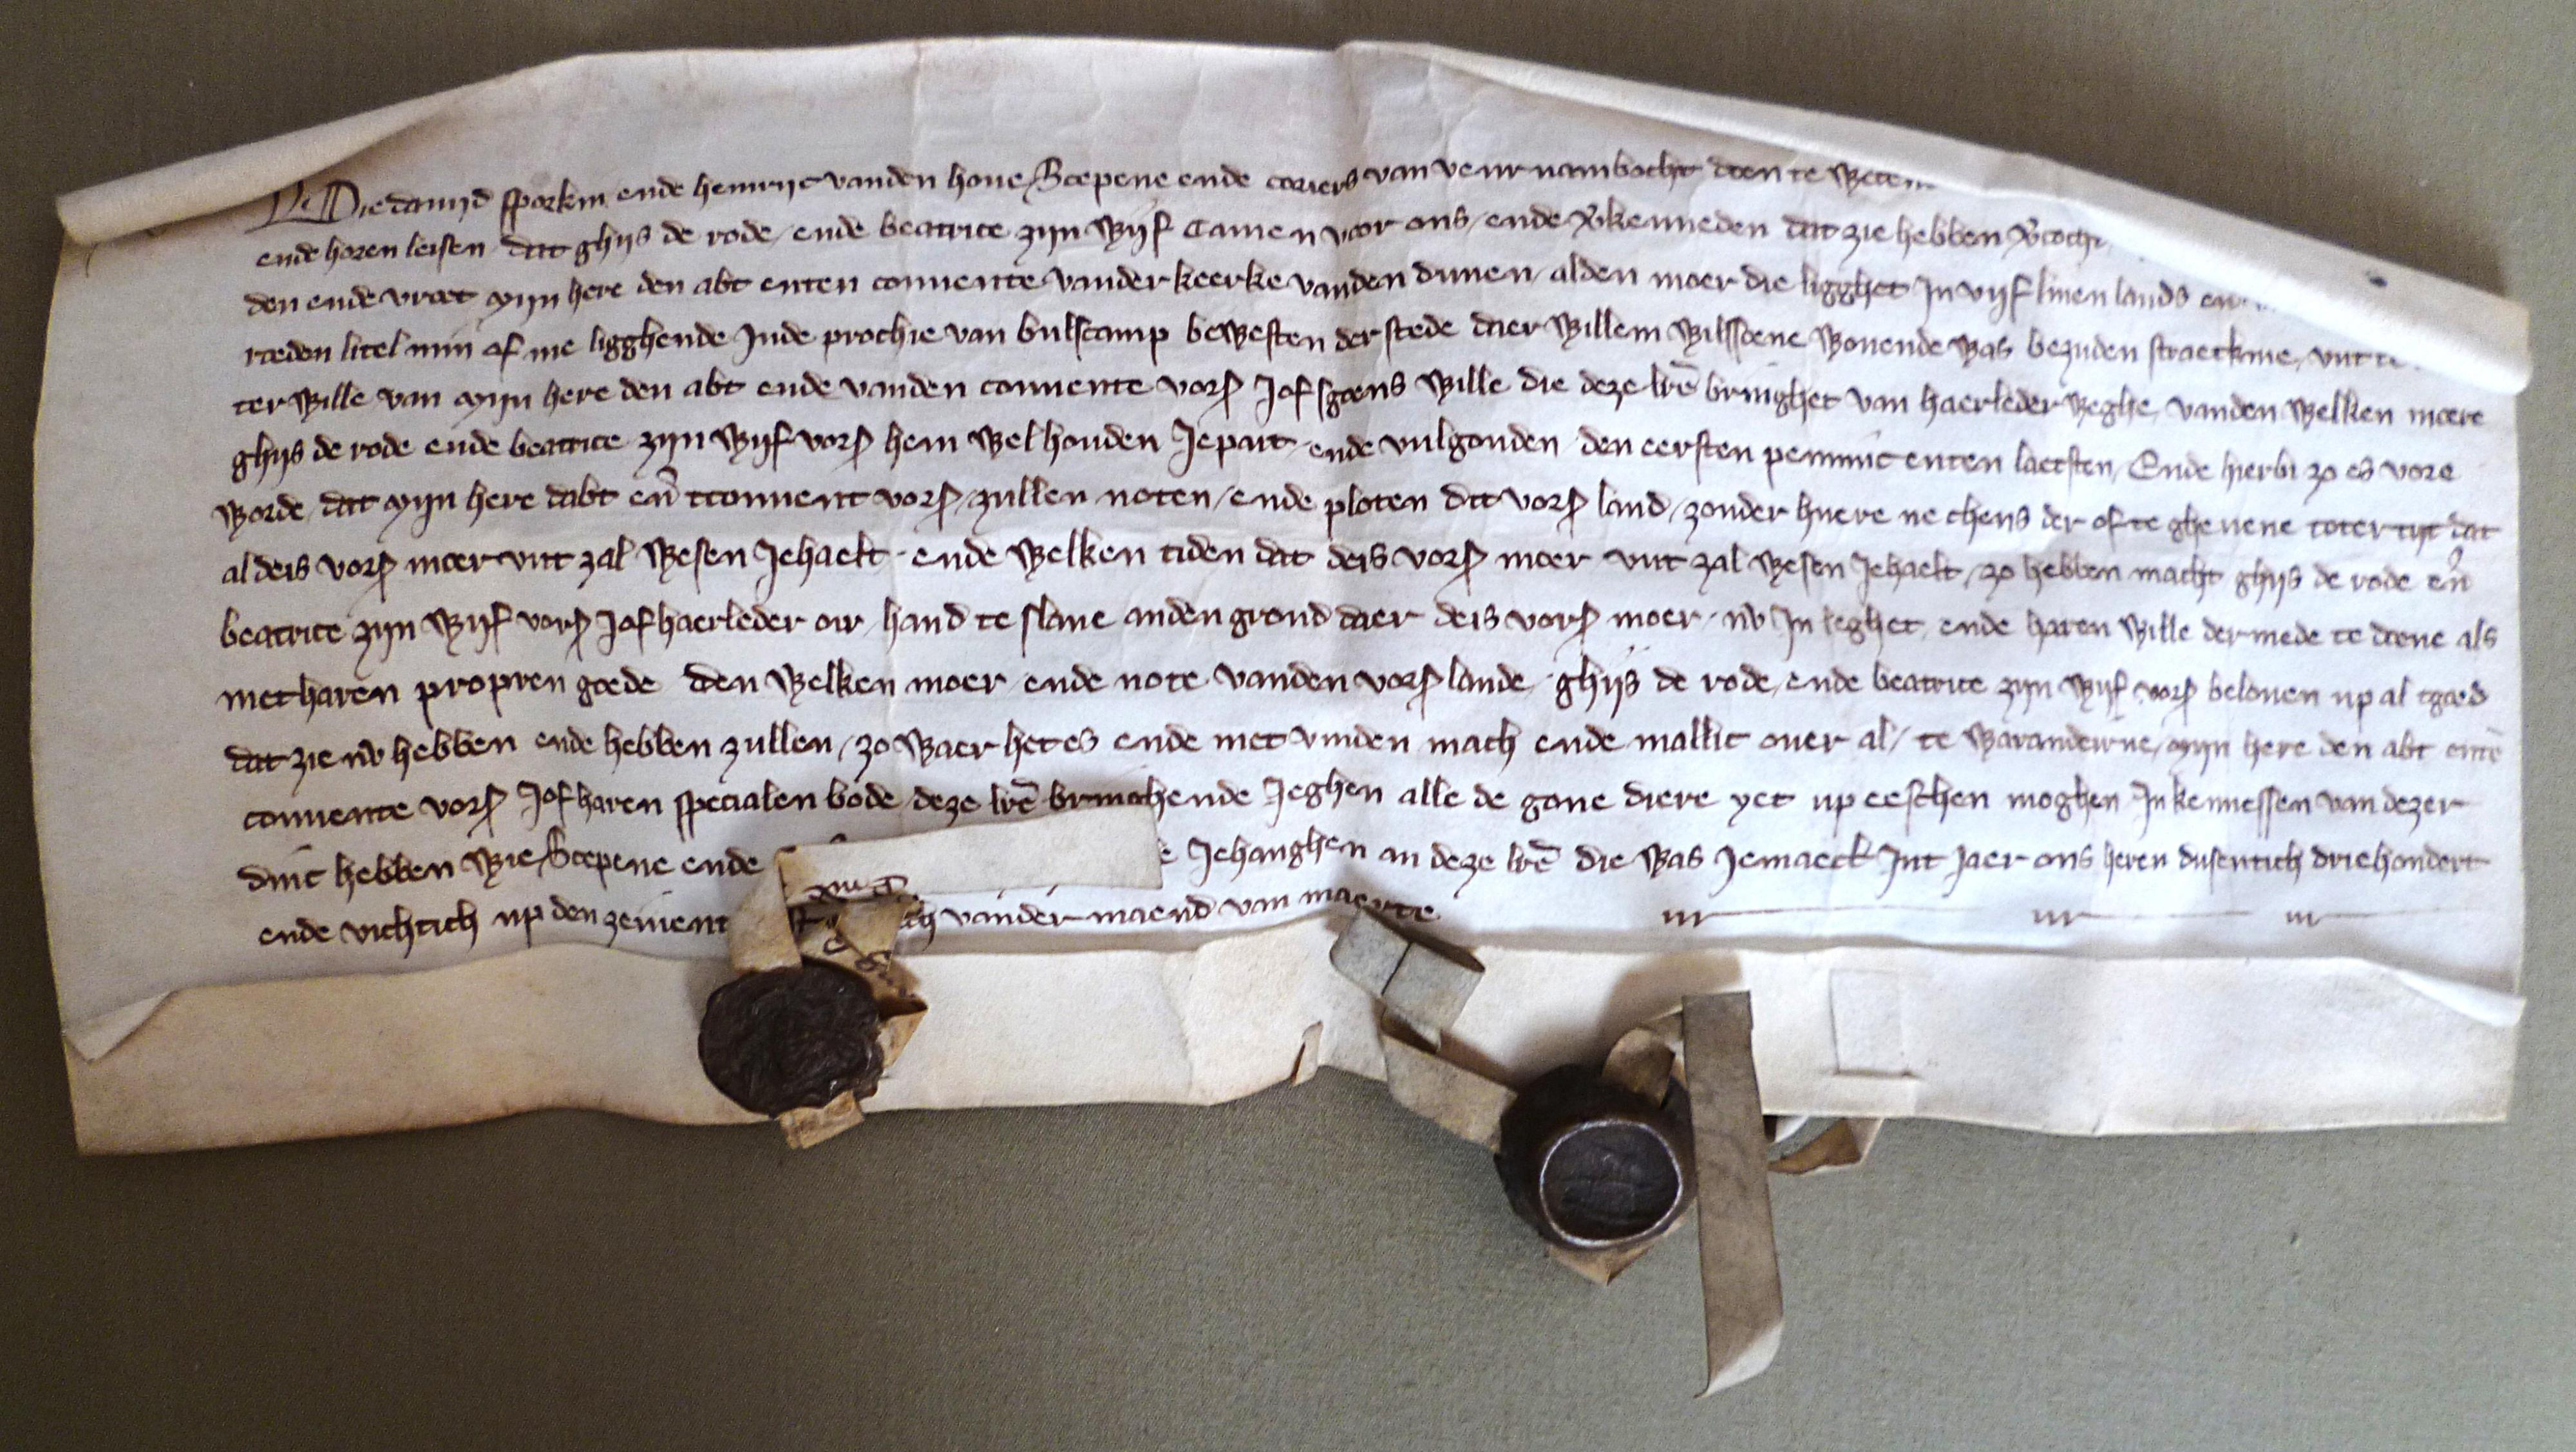 Wie dauijd sporkin ende heinrijc vanden houe Scepene ende coriers van veurnambocht doen te weten
ende horen leisen dat ghijs de rode / ende beatrice zijn wijf Camen voor ons / ende v̄kenneden dat zie hebben v̄cocht
den ende vroet mijn here den abt enten conuente vander keerke vanden dunen / alden moer die ligghet Jn vijf linen lands
roeden litel min of me ligghende Jnde prochie van bulscamp bewesten der stede daer willem wilssoene wonende was bezuden straetkine / vut te
ter wille van mijn here den abt ende vanden conuente vorſ Jof sgoens wille die deze lr̄e bringhet van haerleder weghe / vanden welken moere
ghijs de rode ende beatrice zijn wijf vorſ hem wel houden Jepait / ende vulgouden den eersten penninc enten laetsten / Ende hierbi zo es vore
worde / dat mijn here dabt en̄ tconuent vorſ / zullen noten / ende ploten dit vorſ land / zonder huere ne chens der of te gheuene toter tijt dat
al deis vorſ moer vut zal wesen Jehaelt / ende welken tiden dat deis vorſ moer vut zal wesen Jehaelt / zo hebben macht ghijs de rode en̄
beatrice zijn wijf vorſ Jof haerleder oir / hand te slane anden grond daer deis vorſ moer / nv Jn leghet / ende haren wille dermede te doene als
met haren propren goede den welken moer / ende note vanden vorſ lande / ghijs de rode / ende beatrice zijn wijf vorſ belouen up al tgoed
dat zie nv hebben ende hebben zullen / zo waer het es ende met vinden mach ende mallic ouer al / te warandeirne / mijn here den abt entē
conuente vorſ Jof haren specialen bode / deze lr̄e bringhende Jeghen alle de gone diere yet up eeschen moghen Jn kennessen van dezer
dinc hebben wie Scepene ende Jehanghen an deze lr̄e die was Jemaect Jnt Jaer ons heren dusentich driehondert
ende vichtich up den zeuent vander maend van maerte